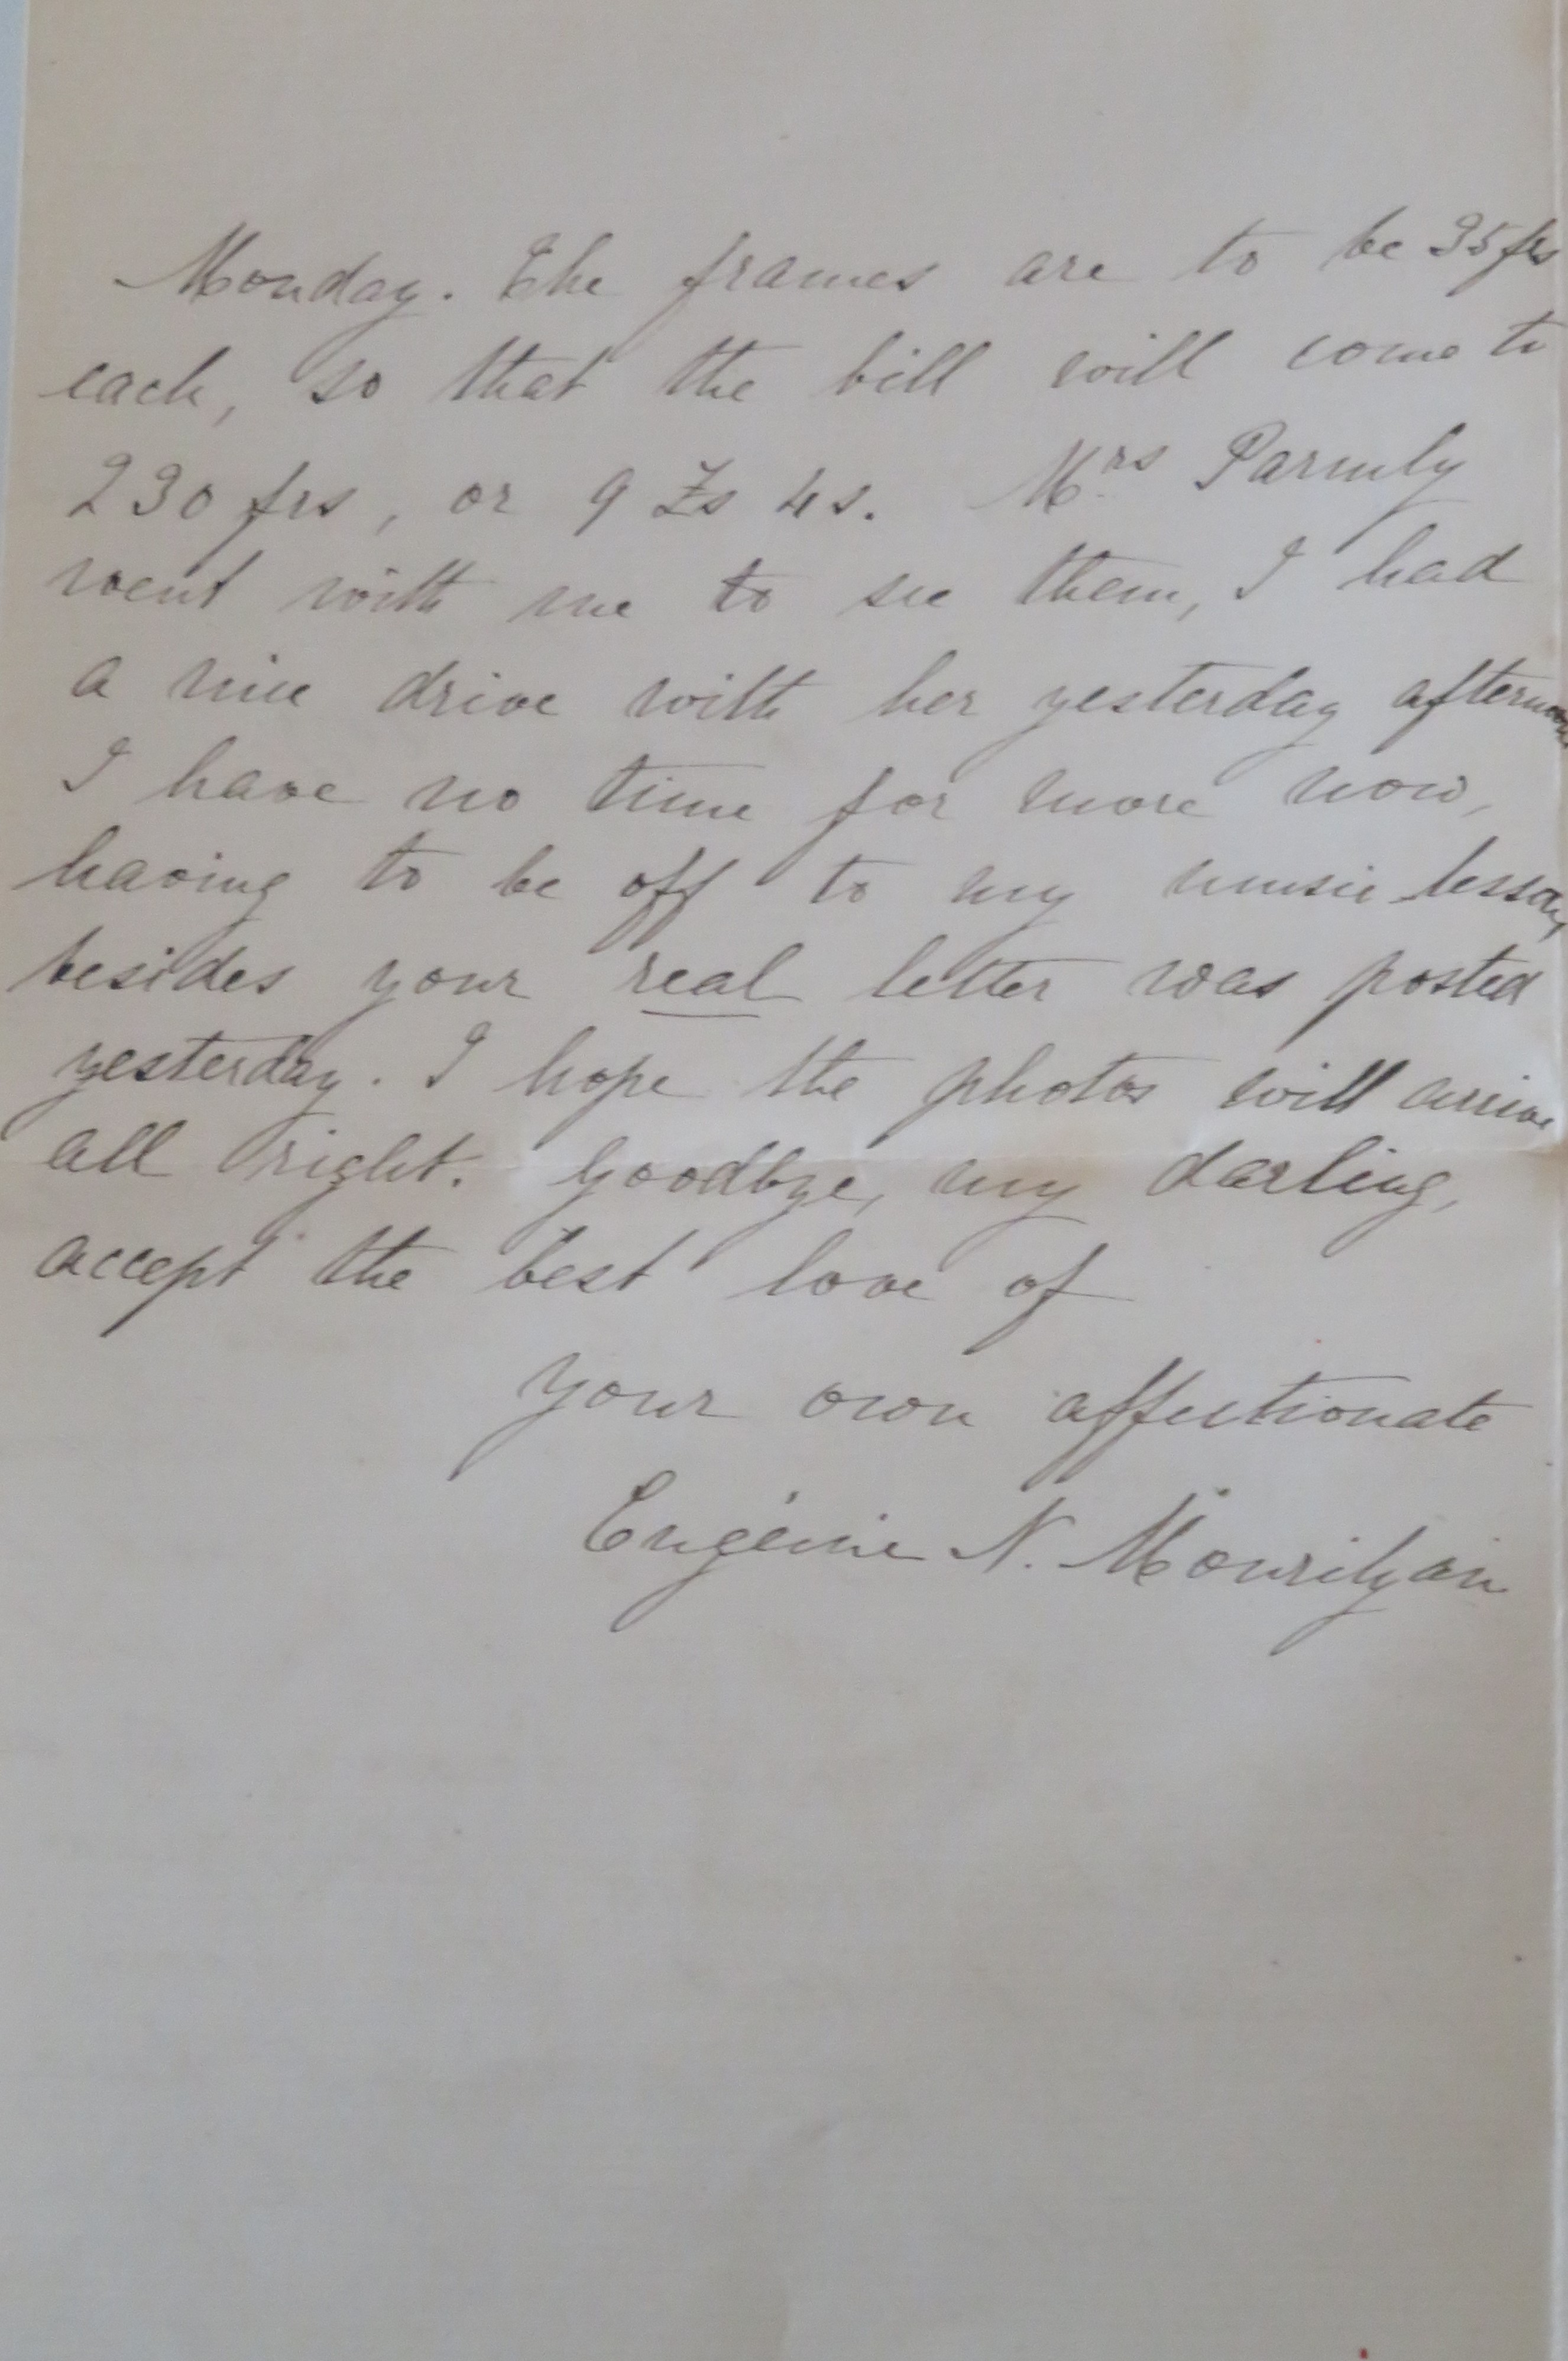 Monday. The frames are to be 35 frs
each, so that the bill will come to
230 frs, or 9 £s 4 s. Mrs Parmly
went with me to see them, I had
a nice drive with her yesterday afternoon
I have no time for more now,
having to be off to my music lesson,
besides your real letter was posted
yesterday. I hope the photos will arrive
all right. Goodbye, my darling,
accept the best love of
your own affectionate
Eugénie N. Mourilyan